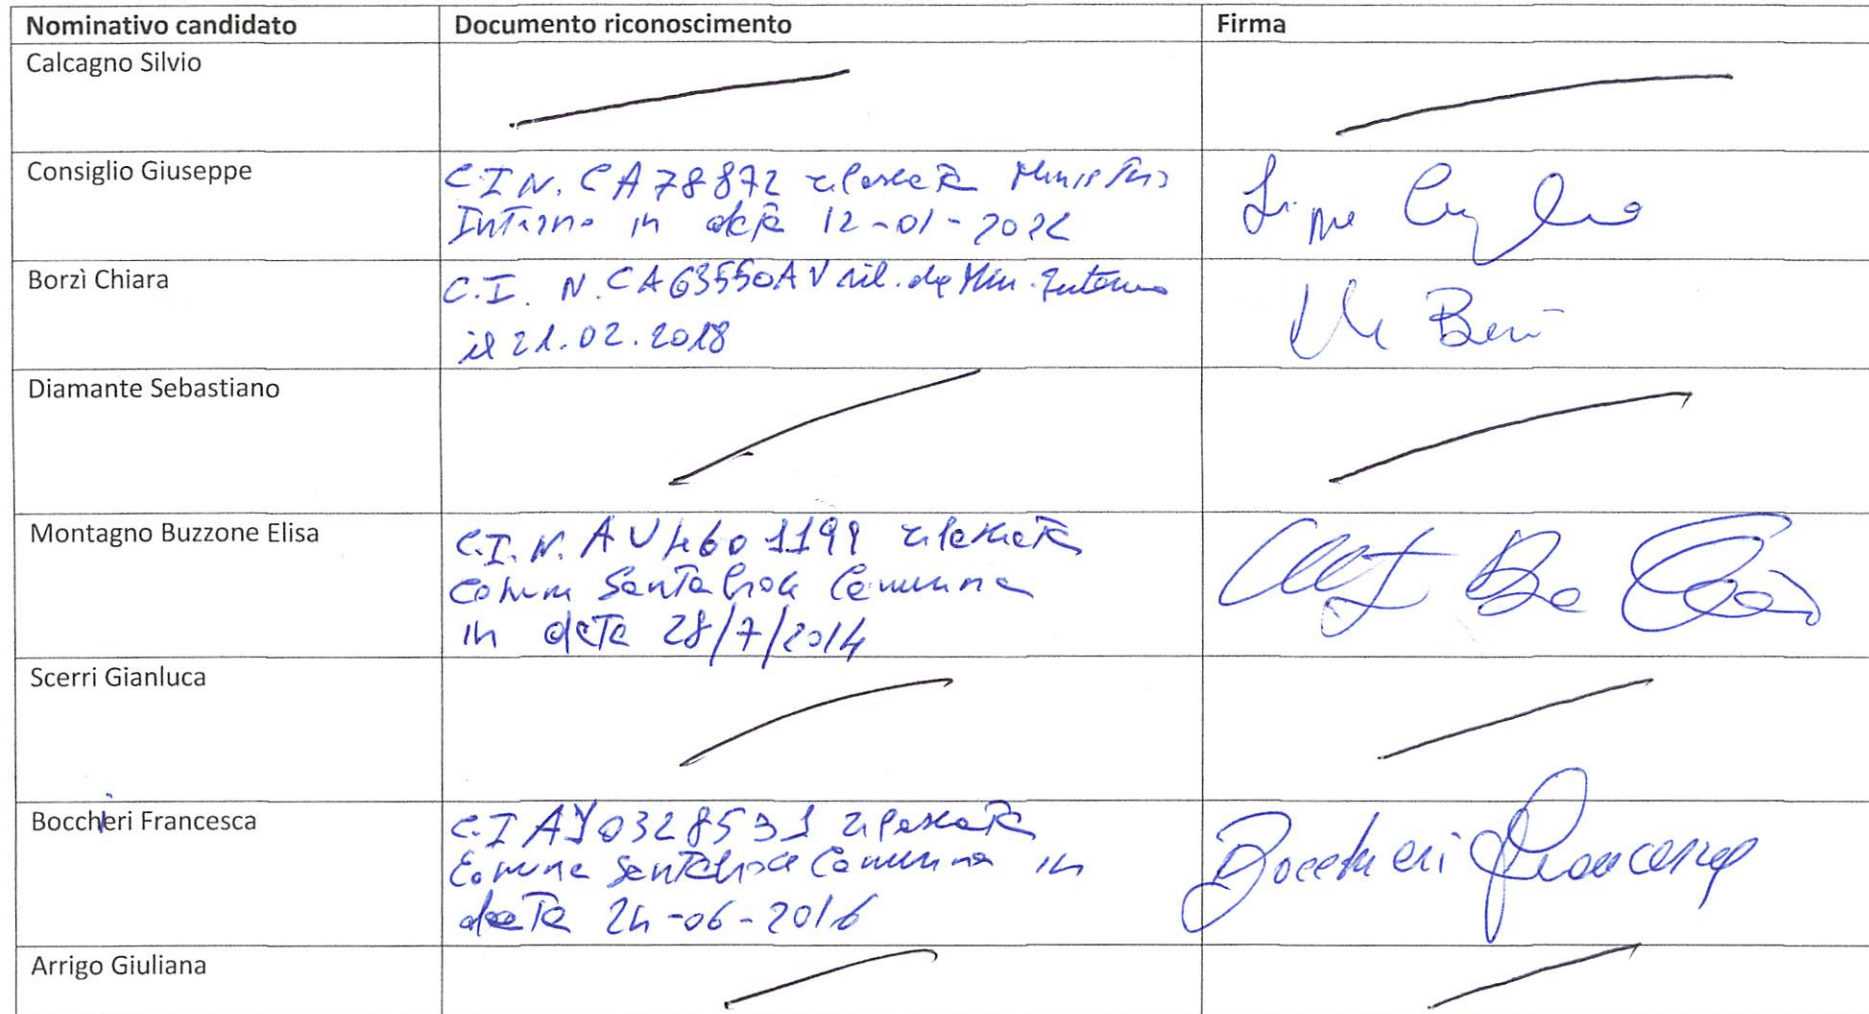 Nominativo candidato Documento riconoscimento Firma
Calcagno Silvio
Consiglio Giuseppe
C.I N. CA78872 rilasciata Ministero
Interno in data 12-01-2022
Borzì Chiara
C.I. N. CA63550AV ril. da Min. Interno
il 21.02.2018
Diamante Sebastiano
Montagno Buzzone Elisa
C.I. N. AV4601199 rilasciata
Comune Santa Croce Camerina
in data 28/7/2014
Scerri Gianluca
Boccheri Francesca
C.I AY0328531 rilasciata
Comune Santa Croce Camerina in
data 24-06-2016
Boccheri Francesca
Arrigo Giuliana